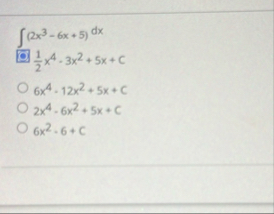 ∫(2x³ - 6x + 5) dx
1/2 x⁴ - 3x² + 5x + C
6x⁴ - 12x² + 5x + C
2x⁴ - 6x² + 5x + C
6x² - 6 + C